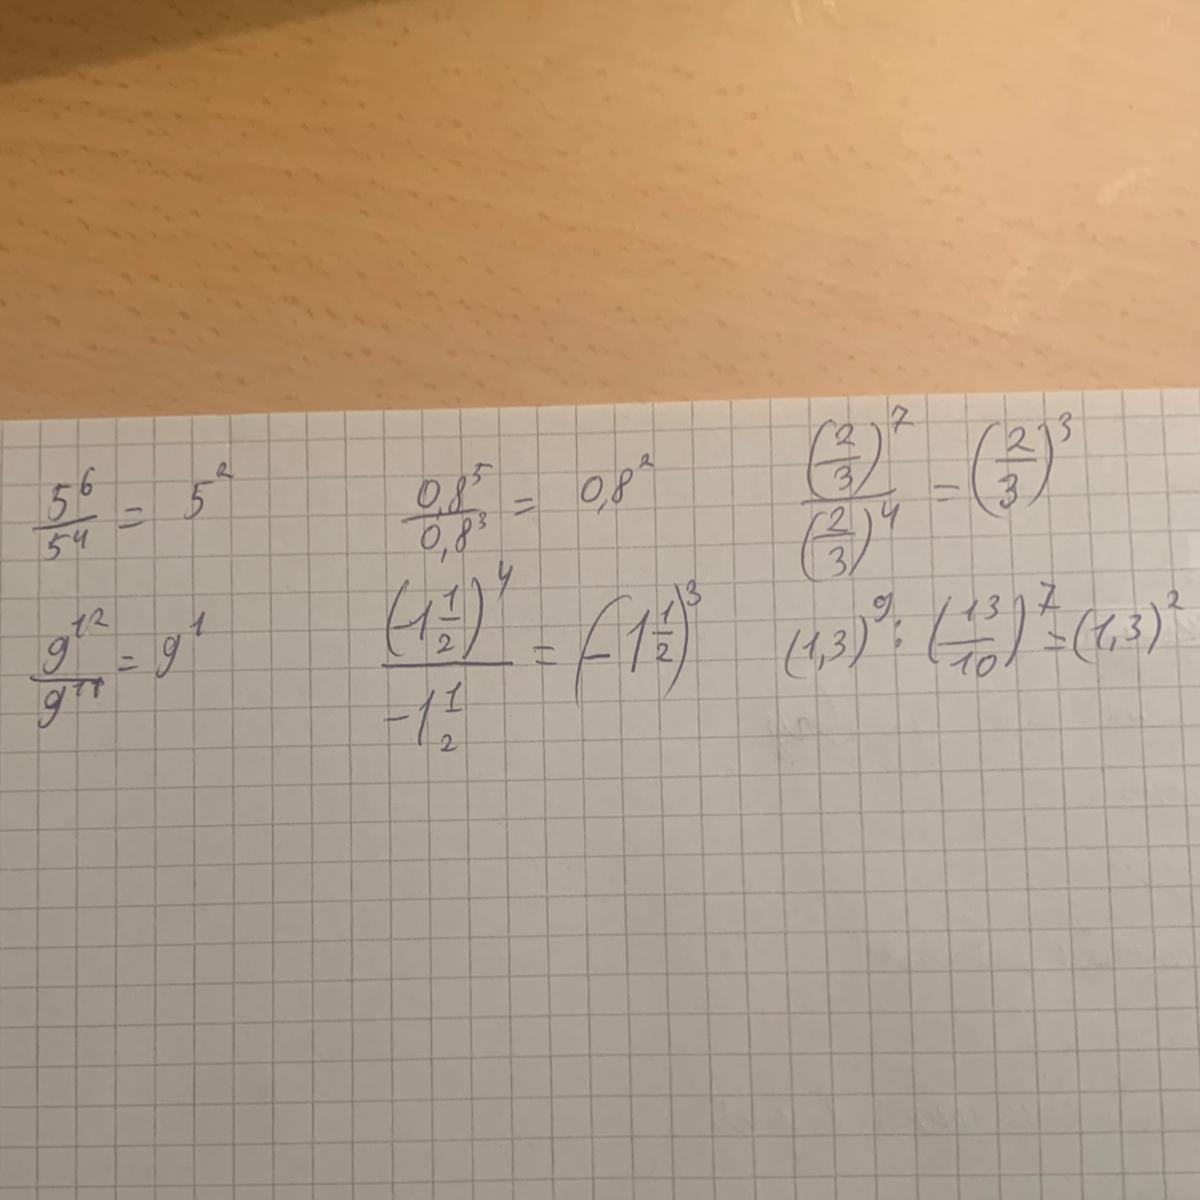 5⁶/5⁴ = 5²
0,8⁵/0,8³ = 0,8²
(2/3)⁷/(2/3)⁴ = (2/3)³
9¹²/9¹¹ = 9¹
(-1 1/2)⁴/-1 1/2 = (-1 1/2)³
(1,3)⁹ : (13/10)⁷ = (1,3)²